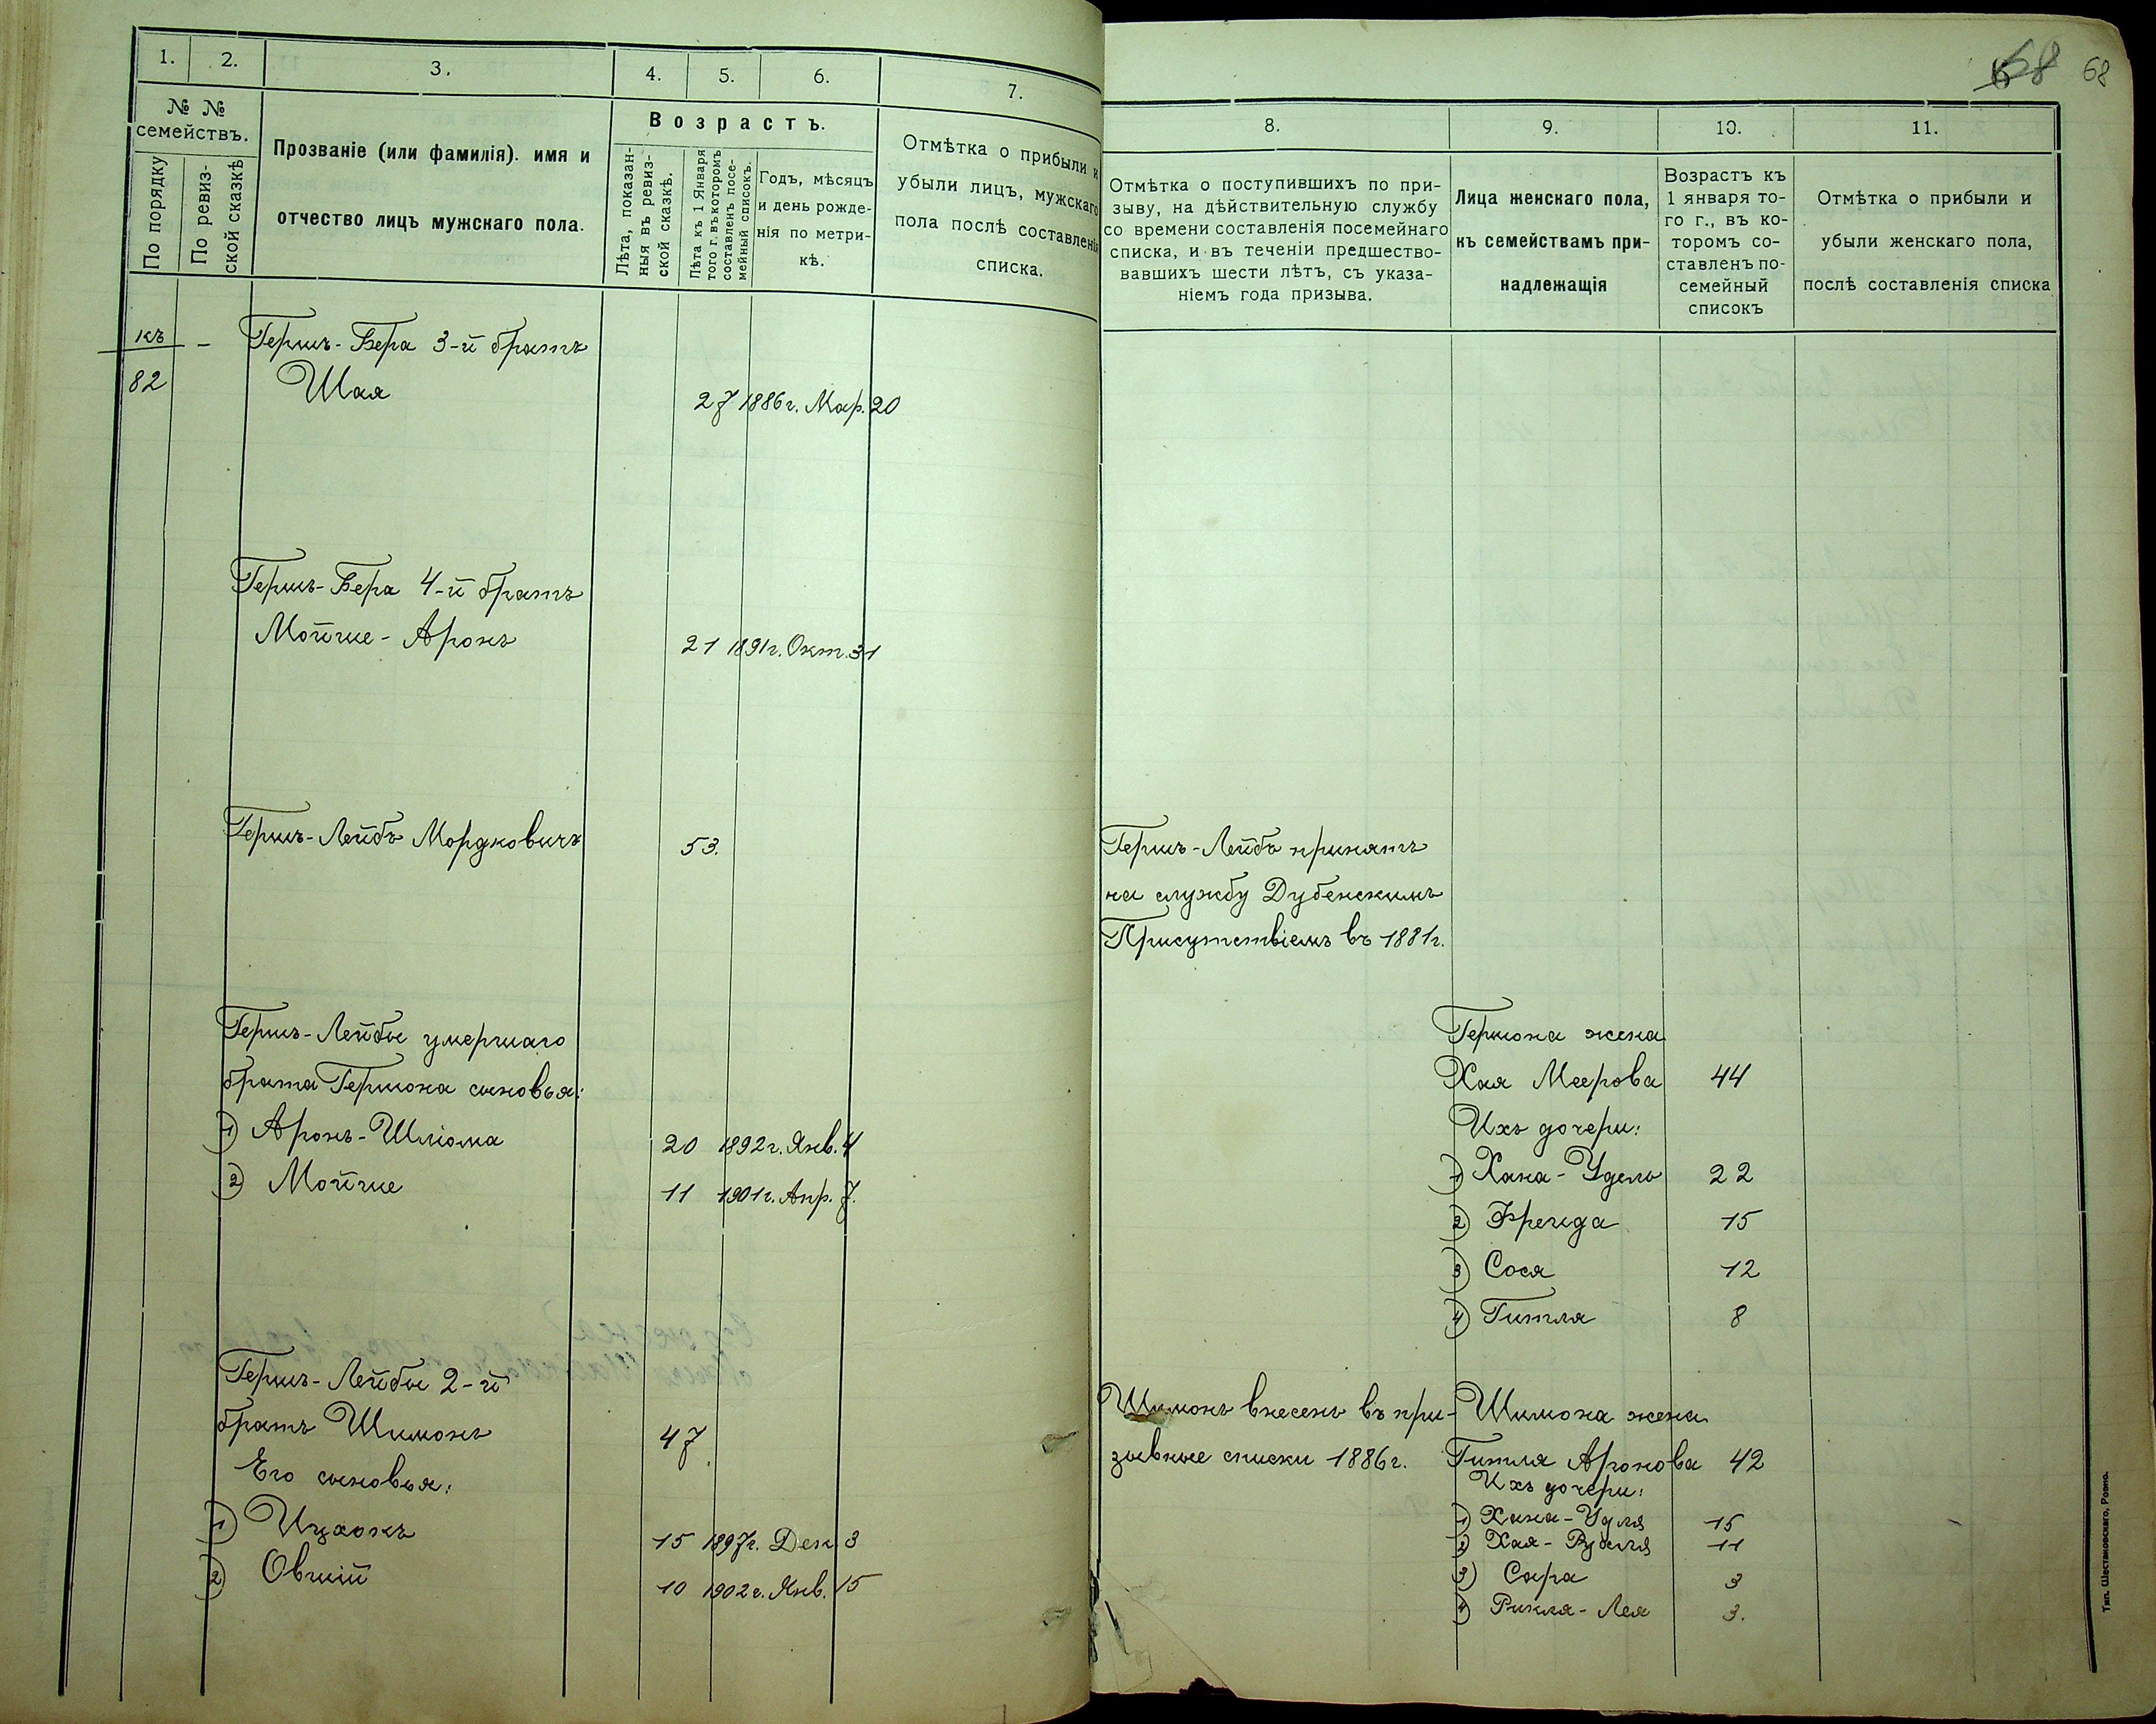 1.
2.
3.
4.
5.
6.
7.
№ №
семействъ.
По порядку
По ревиз-
ской сказкѣ
Прозваніе (или фамилія). имя и
отчество лицъ мужскаго пола.
Возрастъ.
Лѣта, показан-
ныя въ ревиз-
ской сказкѣ.
Лѣта къ 1 Января
того г. въ которомъ
составленъ посе-
мейный списокъ.
Годъ, мѣсяцъ
и день рожде-
нія по метри-
кѣ.
Отмѣтка о прибыли и
убыли лицъ, мужскаго
пола послѣ составленія
списка.
къ
82
–
Гершъ-Бера 3-й братъ
Шая
27 1886г. Мар. 20
Гершъ-Бера 4-й братъ
Мойше-Аронъ
21 1891г. Окт. 31
Гершъ-Лейбъ Мордковичъ
53.
Гершъ-Лейбы умершаго
брата Гершона сыновья:
1) Аронъ-Шліома
20 1892г. Янв. 4
2) Мойше
11 1901г. Апр. 7.
Гершъ-Лейбы 2-й
братъ Шимонъ
47
Его сыновья:
1) Ицхокъ
15 1897г. Дек. 3
2) Овшій
10 1902г. Янв. 15
68 68
8.
9.
10.
11.
Отмѣтка о поступившихъ по при-
зыву, на дѣйствительную службу
со времени составленія посемейнаго
списка, и въ теченіи предшество-
вавшихъ шести лѣтъ, съ указа-
ніемъ года призыва.
Лица женскаго пола,
къ семействамъ при-
надлежащія
Возрастъ къ
1 января то-
го г., въ ко-
торомъ со-
ставленъ по-
семейный
списокъ
Отмѣтка о прибыли и
убыли женскаго пола,
послѣ составленія списка
Гершъ-Лейбъ принятъ
на службу Дубенскимъ
Присутствіемъ въ 1881г.
Гершона жена
Хая Меерова 44
Ихъ дочери:
1) Хана-Удель 22
2) Фрейда 15
3) Сося 12
4) Гитля 8
Шимонъ внесенъ въ при-
зывные списки 1886г.
Шимона жена
Гитля Аронова 42
Ихъ дочери:
1) Хана-Удля 15
2) Хая-Рухля 11
3) Сара 3
4) Рикля-Лея 3.
Тип. Шестаковскаго, Ровно.